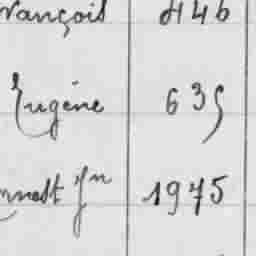 rançois 446
Eugène 635
nnest Jn 1975